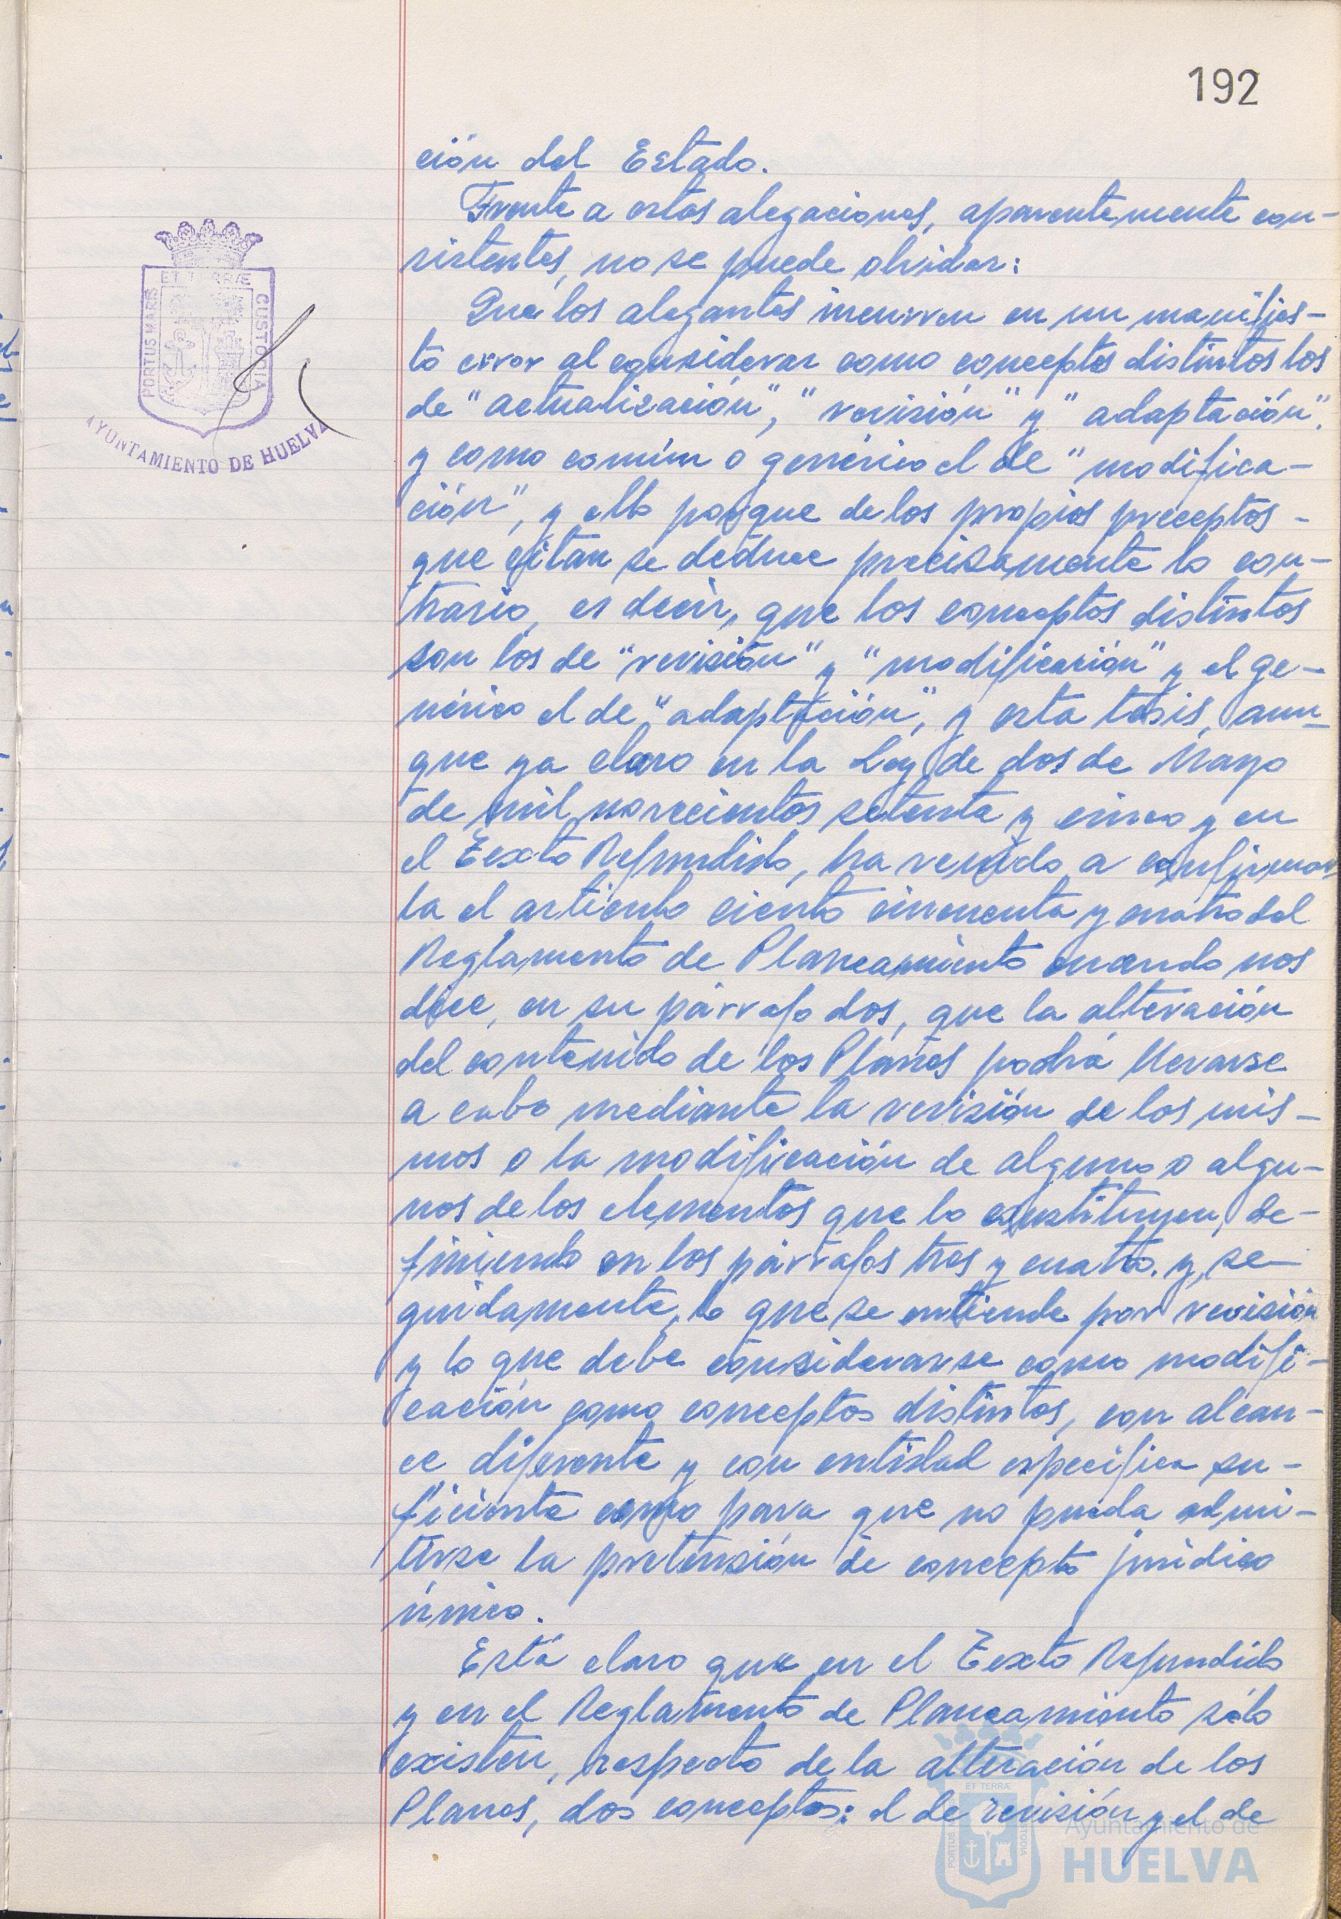 192
ción del Estado.
Frente a estas alegaciones, aparentemente con-
sistentes, no se puede olvidar:
Que los alegantes incurren en un manifies-
to error al considerar como conceptos distintos los
de "actualización", "revisión" y "adaptación",
y como común o genérico el de "modifica-
ción", y ello porque de los propios preceptos-
que citan se deduce precisamente lo con-
trario, es decir, que los conceptos distintos
son los de "revisión" y "modificación" y el ge-
nérico el de "adaptación", y esta tesis, aun-
que ya claro en la Ley de dos de Mayo
de mil novecientos setenta y cinco y en
el Texto Refundido, ha venido a confirmar
la el artículo ciento cincuenta y cuatro del
Reglamento de Planeamiento cuando nos
dice, en su párrafo dos, que la alteración
del contenido de los Planes podrá llevarse
a cabo mediante la revisión de los mis-
mos o la modificación de alguno o algu-
nos de los elementos que lo constituyen, de-
finiendo en los párrafos tres y cuatro y, se-
guidamente, lo que se entiende por revisión
y lo que debe considerarse como modifi-
cación como conceptos distintos, con alcan-
ce diferente y con entidad específica su-
ficiente como para que no pueda admi-
tirse la pretensión de concepto jurídico
único.
Está claro que en el Texto Refundido
y en el Reglamento de Planeamiento sólo
existen, respecto de la alteración de los
Planes, dos conceptos: el de revisión y el de
PORTUS MARIS ET TERRÆ CUSTODIA
AYUNTAMIENTO DE HUELVA
PORTUS ET TERRÆ CUSTODIA
Ayuntamiento de
HUELVA